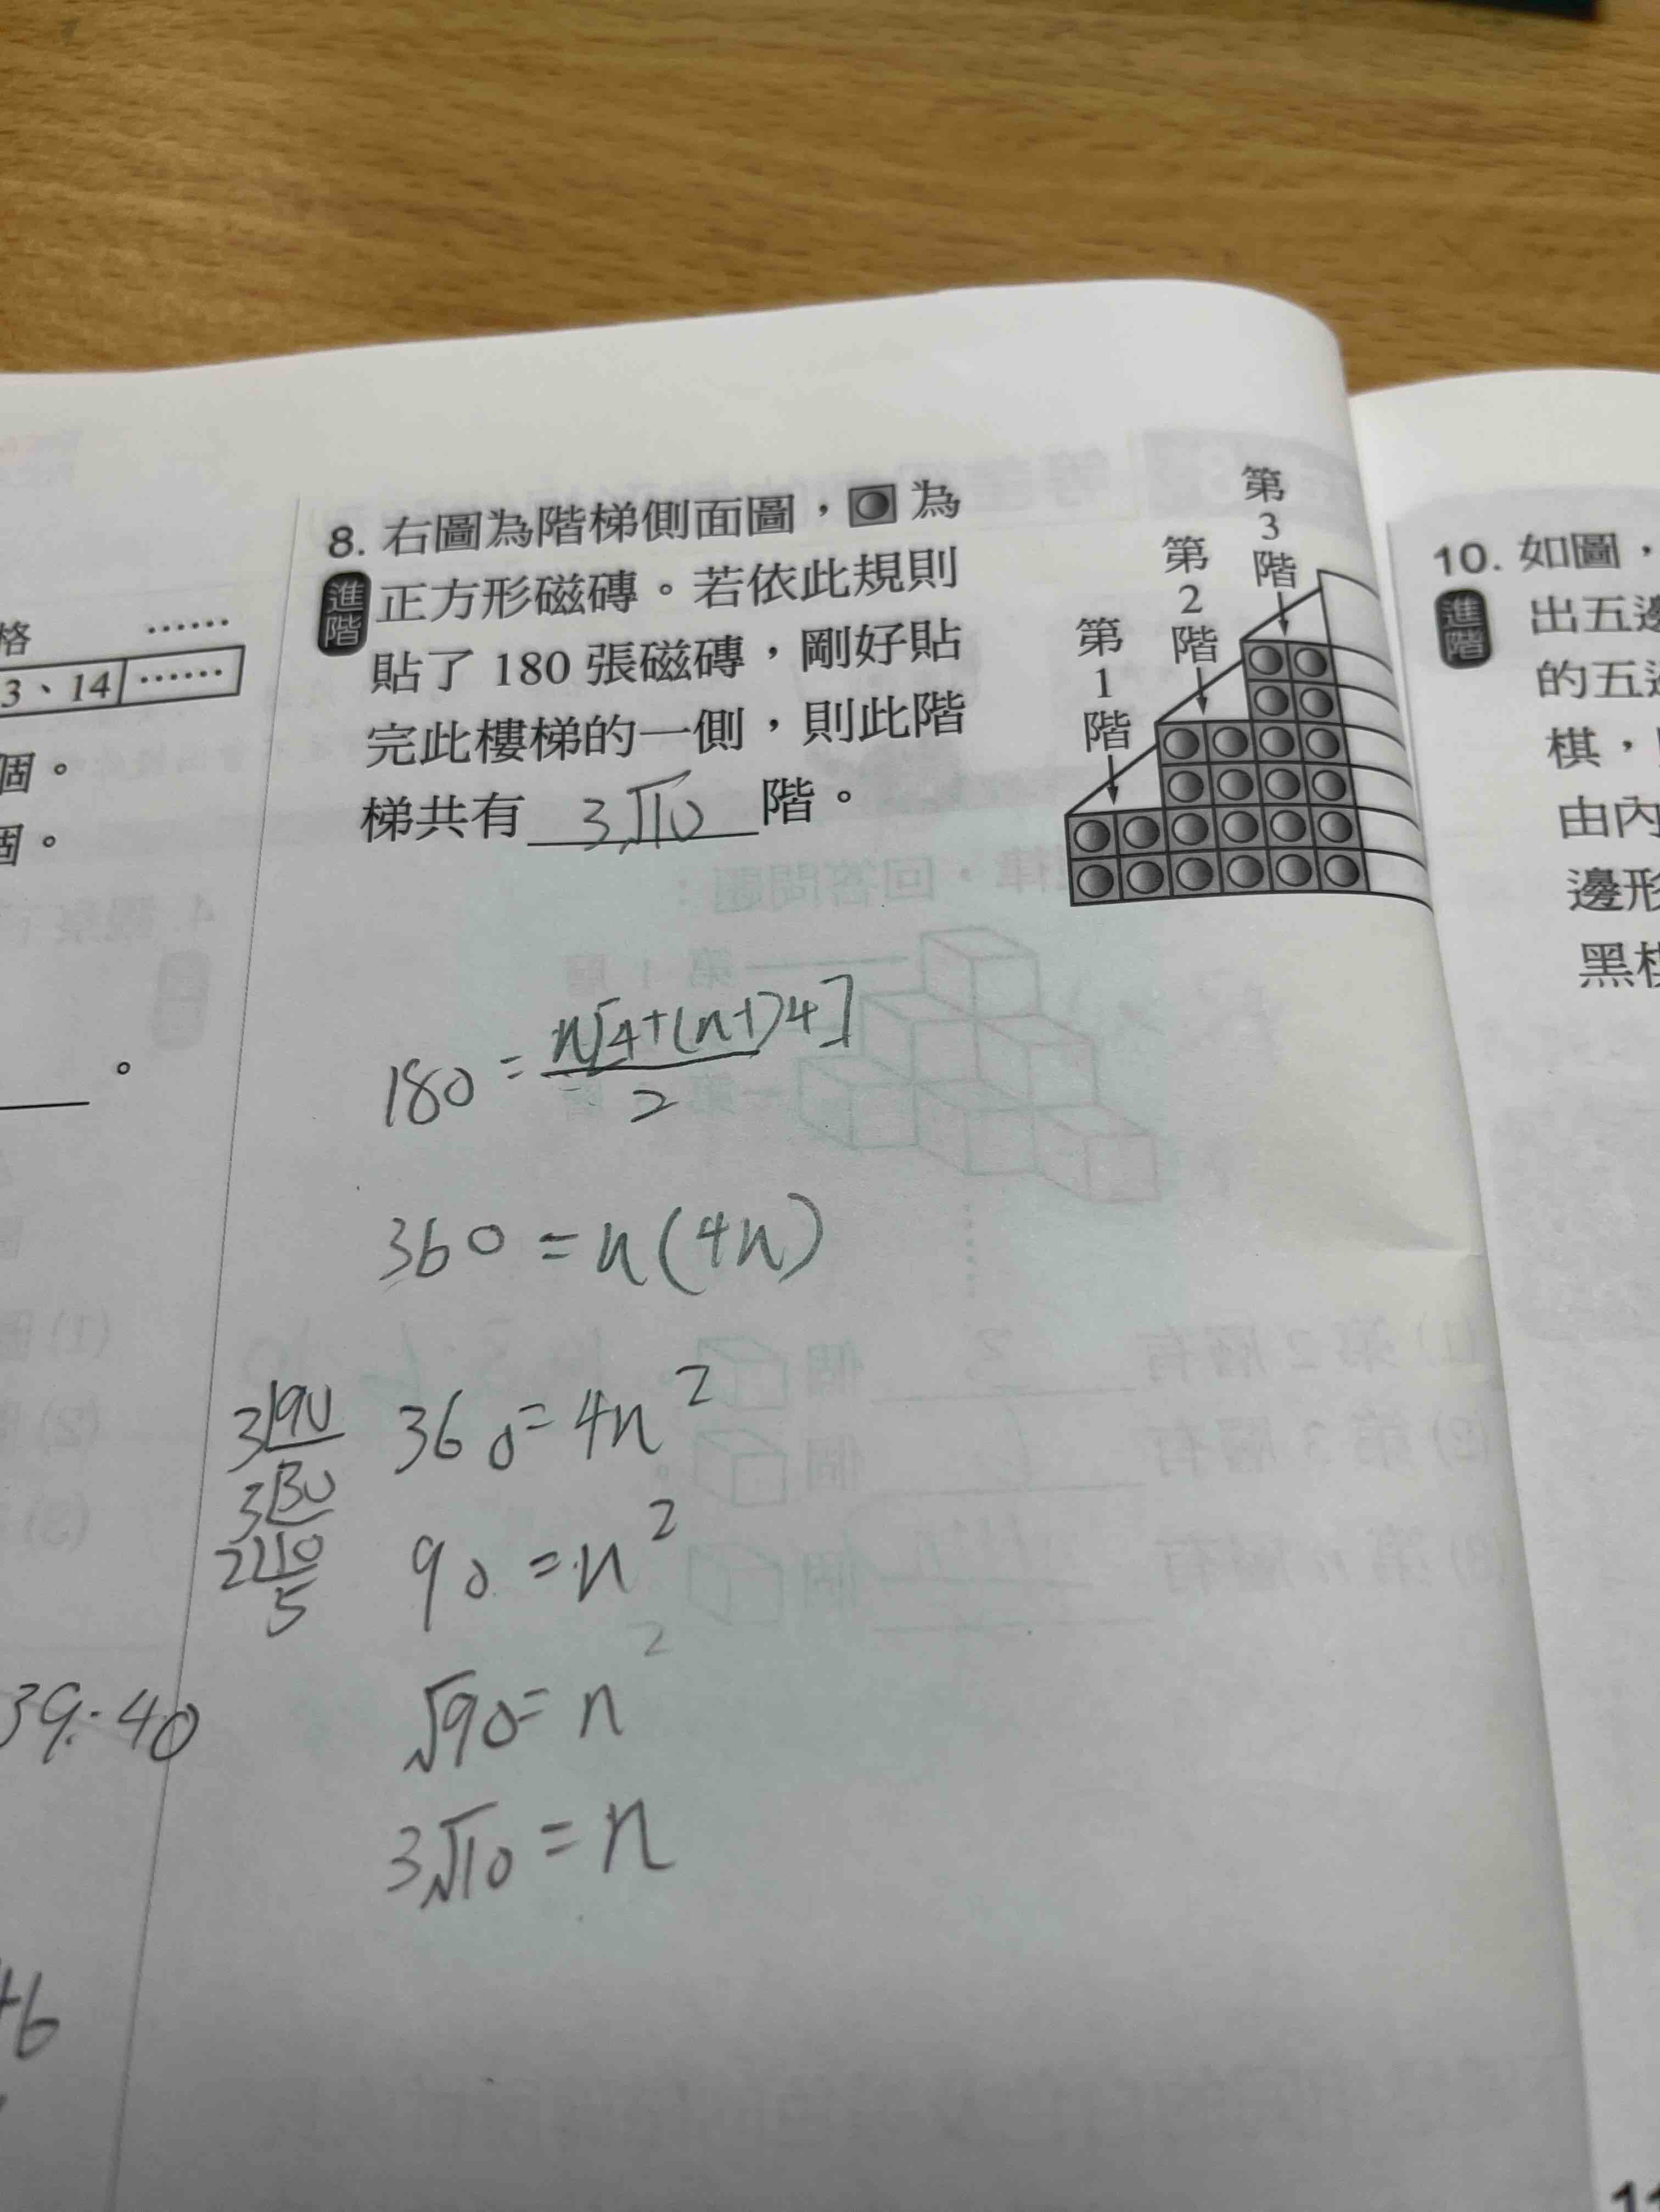 格 ……
3、14 ……
個。
個。
。
39:40
+6
8. 右圖為階梯側面圖，為
進階 正方形磁磚。若依此規則
貼了 180 張磁磚，剛好貼
完此樓梯的一側，則此階
梯共有 3√10 階。
第1階
第2階
第3階
180 = n[4+(n-1)4] / 2
360 = n(4n)
360 = 4n²
90 = n²
√90 = n
3√10 = n
3 90
3 30
2 10
5
10. 如圖，
進階 出五邊
的五邊
棋，
由內
邊形
黑棋